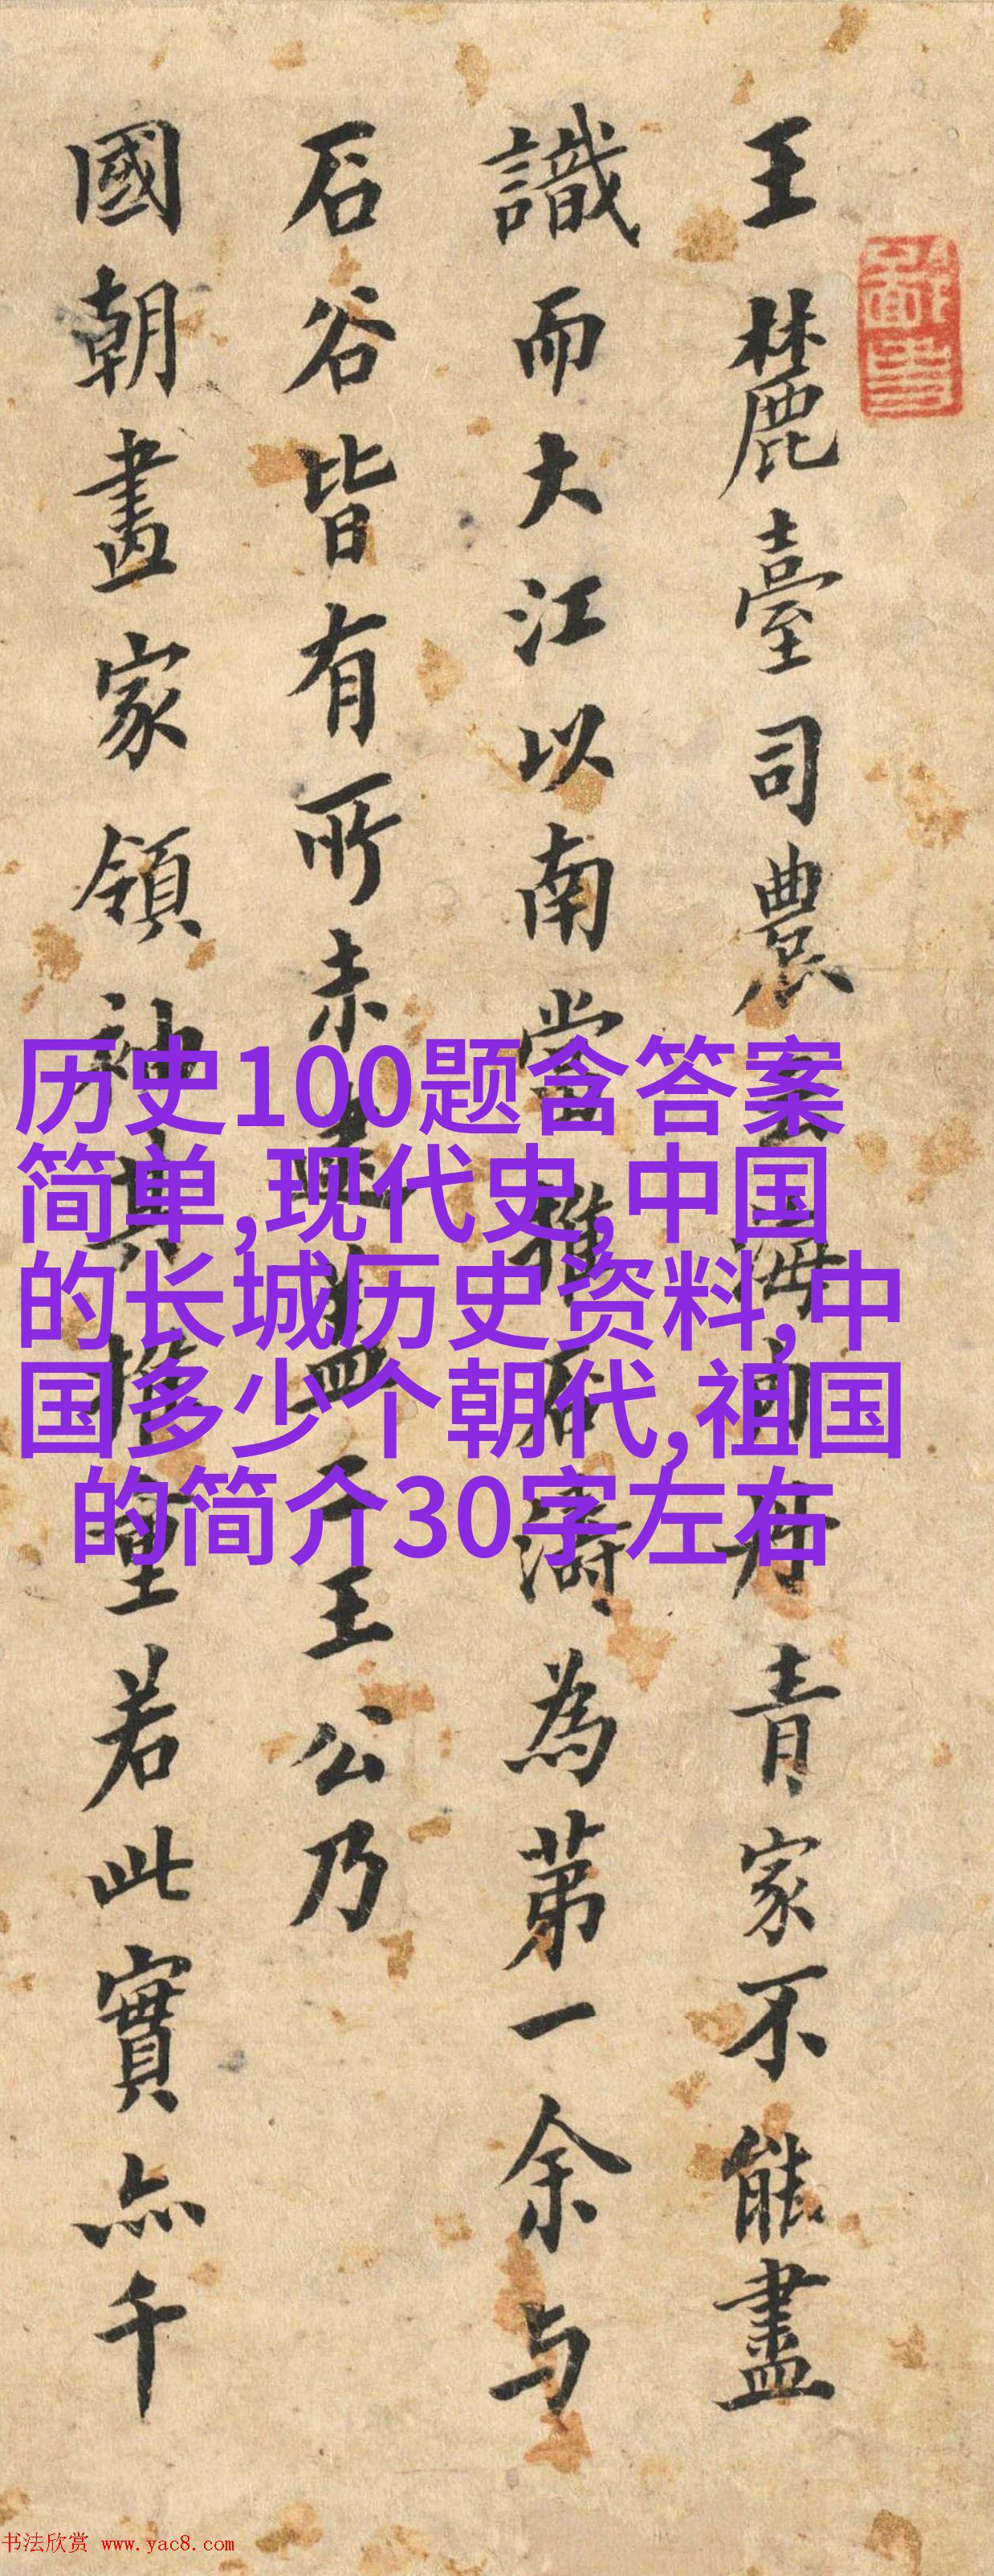 王麓臺司農云海內丹青家不能盡
識而大江以南當推石濤為第一余与
石谷皆有所未逮蓋二王公乃
國朝畫家領袖其推重若此實亦千
历史100题含答案
简单,现代史,中国
的长城历史资料,中
国多少个朝代,祖国
的简介30字左右
书法欣赏 www.yac8.com